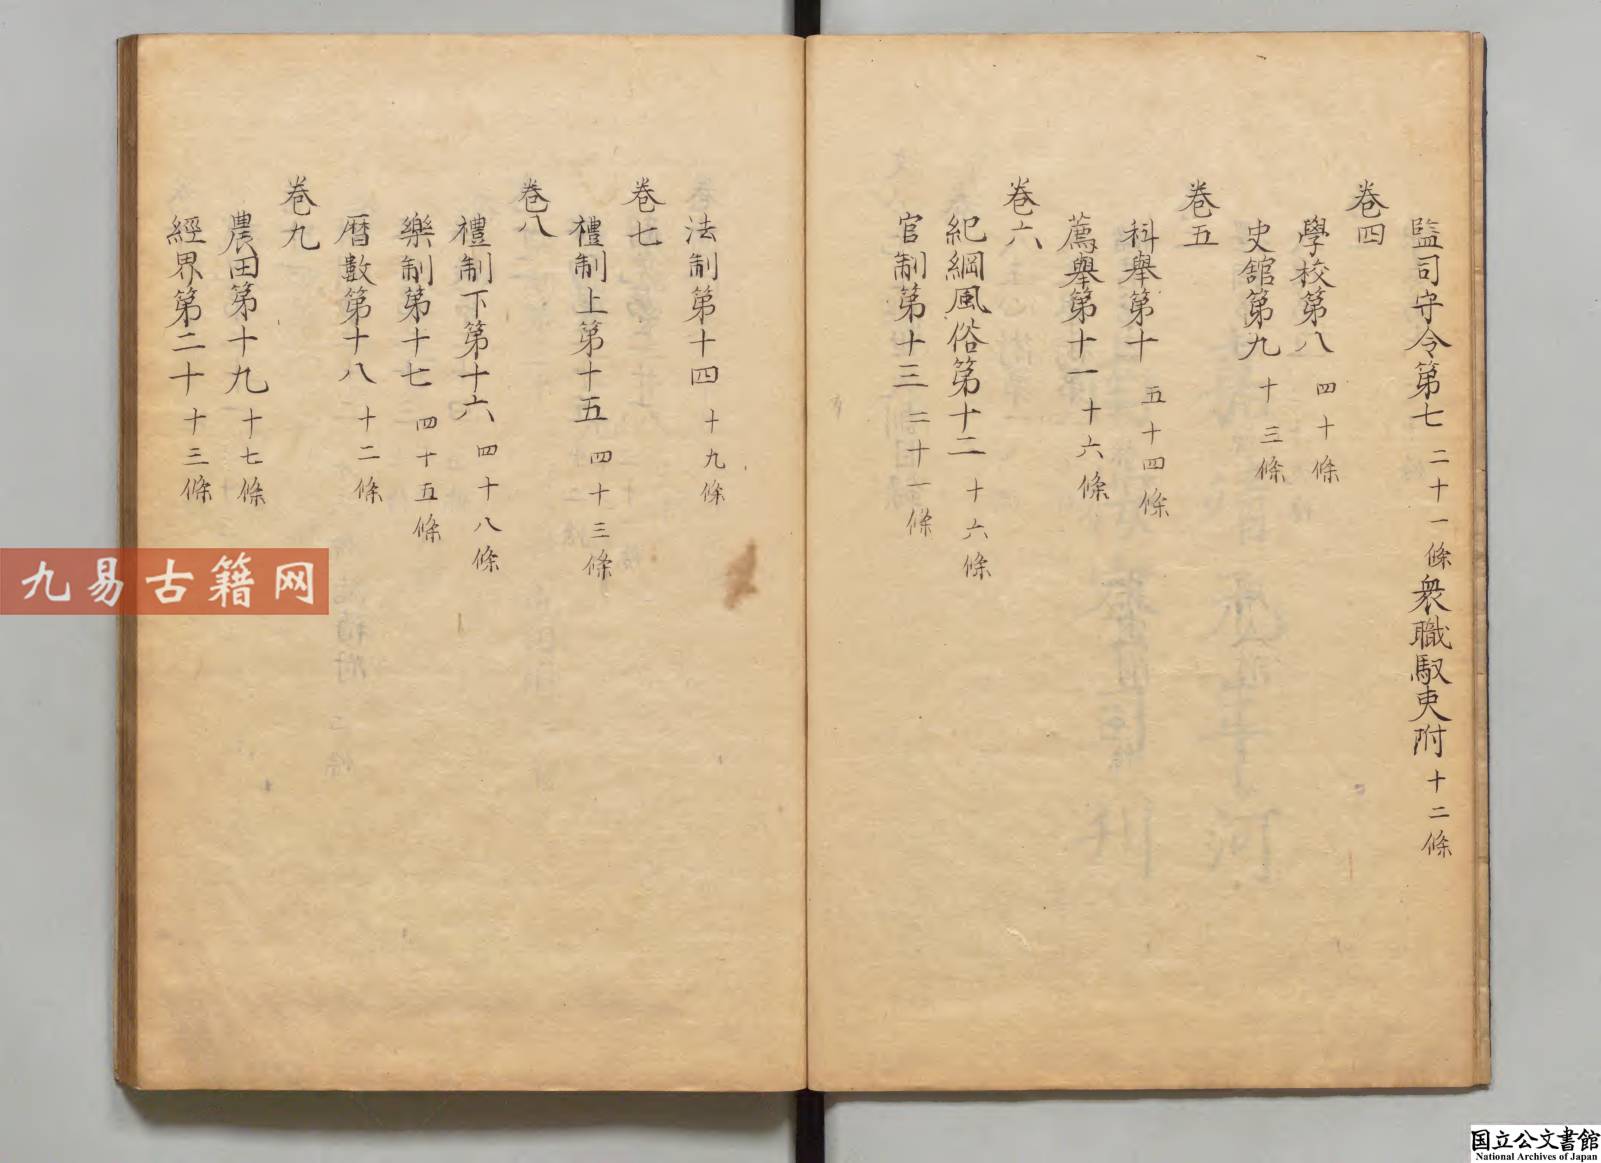 監司守令第七 二十一條 衆職馭吏附 十二條
卷四
學校第八 四十條
史館第九 十三條
卷五
科舉第十 五十四條
薦舉第十一 十六條
卷六
紀綱風俗第十二 十六條
官制第十三 二十一條
法制第十四 十九條
卷七
禮制上第十五 四十三條
卷八
禮制下第十六 四十八條
樂制第十七 四十五條
曆數第十八 十二條
卷九
農田第十九 十七條
經界第二十 十三條
九易古籍网
国立公文書館
National Archives of Japan